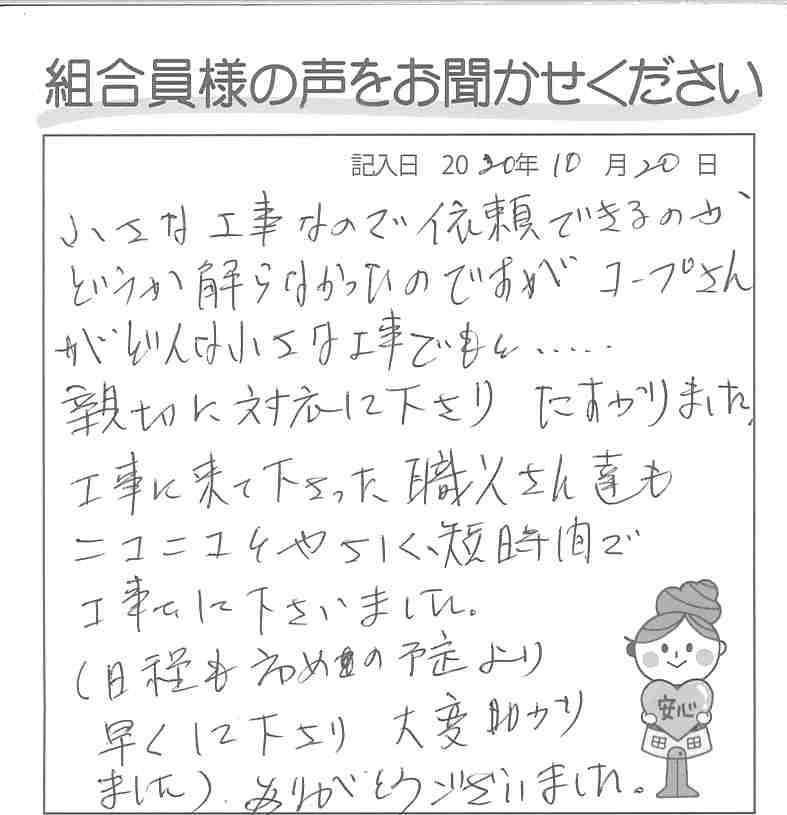 組合員様の声をお聞かせください
記入日 2020年10月20日
小さな工事なので依頼できるのか、
どうか解らなかったのですがコープさん
がどんな小さな工事でもと.....
親切に対応して下さり たすかりました。
工事に来て下さった職人さん達も
ニコニコ 短時間で
工事して下さいました。
(日程も初めの予定より
早くして下さり 大変助かり
ました)ありがとうございました。
安心